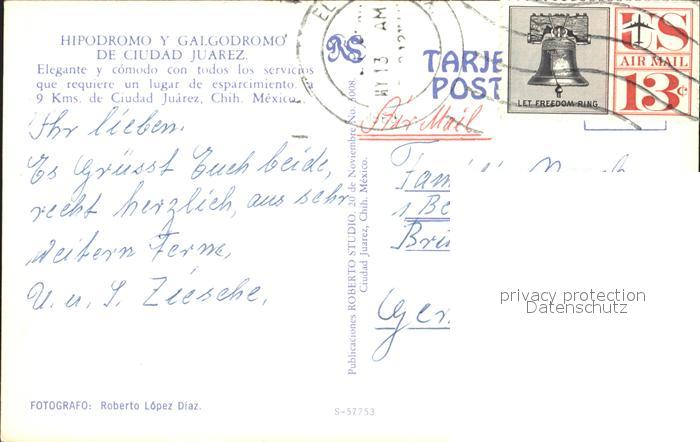 HIPODROMO Y GALGODROMO
DE CIUDAD JUAREZ.
Elegante y cómodo con todos los servicios
que requiere un lugar de esparcimiento. a
9 Kms. de Ciudad Juárez, Chih. México.
Ihr lieben.
Es grüsst Euch beide,
recht herzlich, aus sehr
weitern Ferne,
U. u. S. Ziesche,
FOTOGRAFO: Roberto López Díaz.
Publicaciones ROBERTO STUDIO. 20 de Noviembre No. 5008.
Ciudad Juarez, Chih. México.
S-57753
EL
13 AM
TARJE
POST
LET FREEDOM RING
US
AIR MAIL
13¢
Air Mail
Fam
1 Be
Bri
Ger
privacy protection
Datenschutz